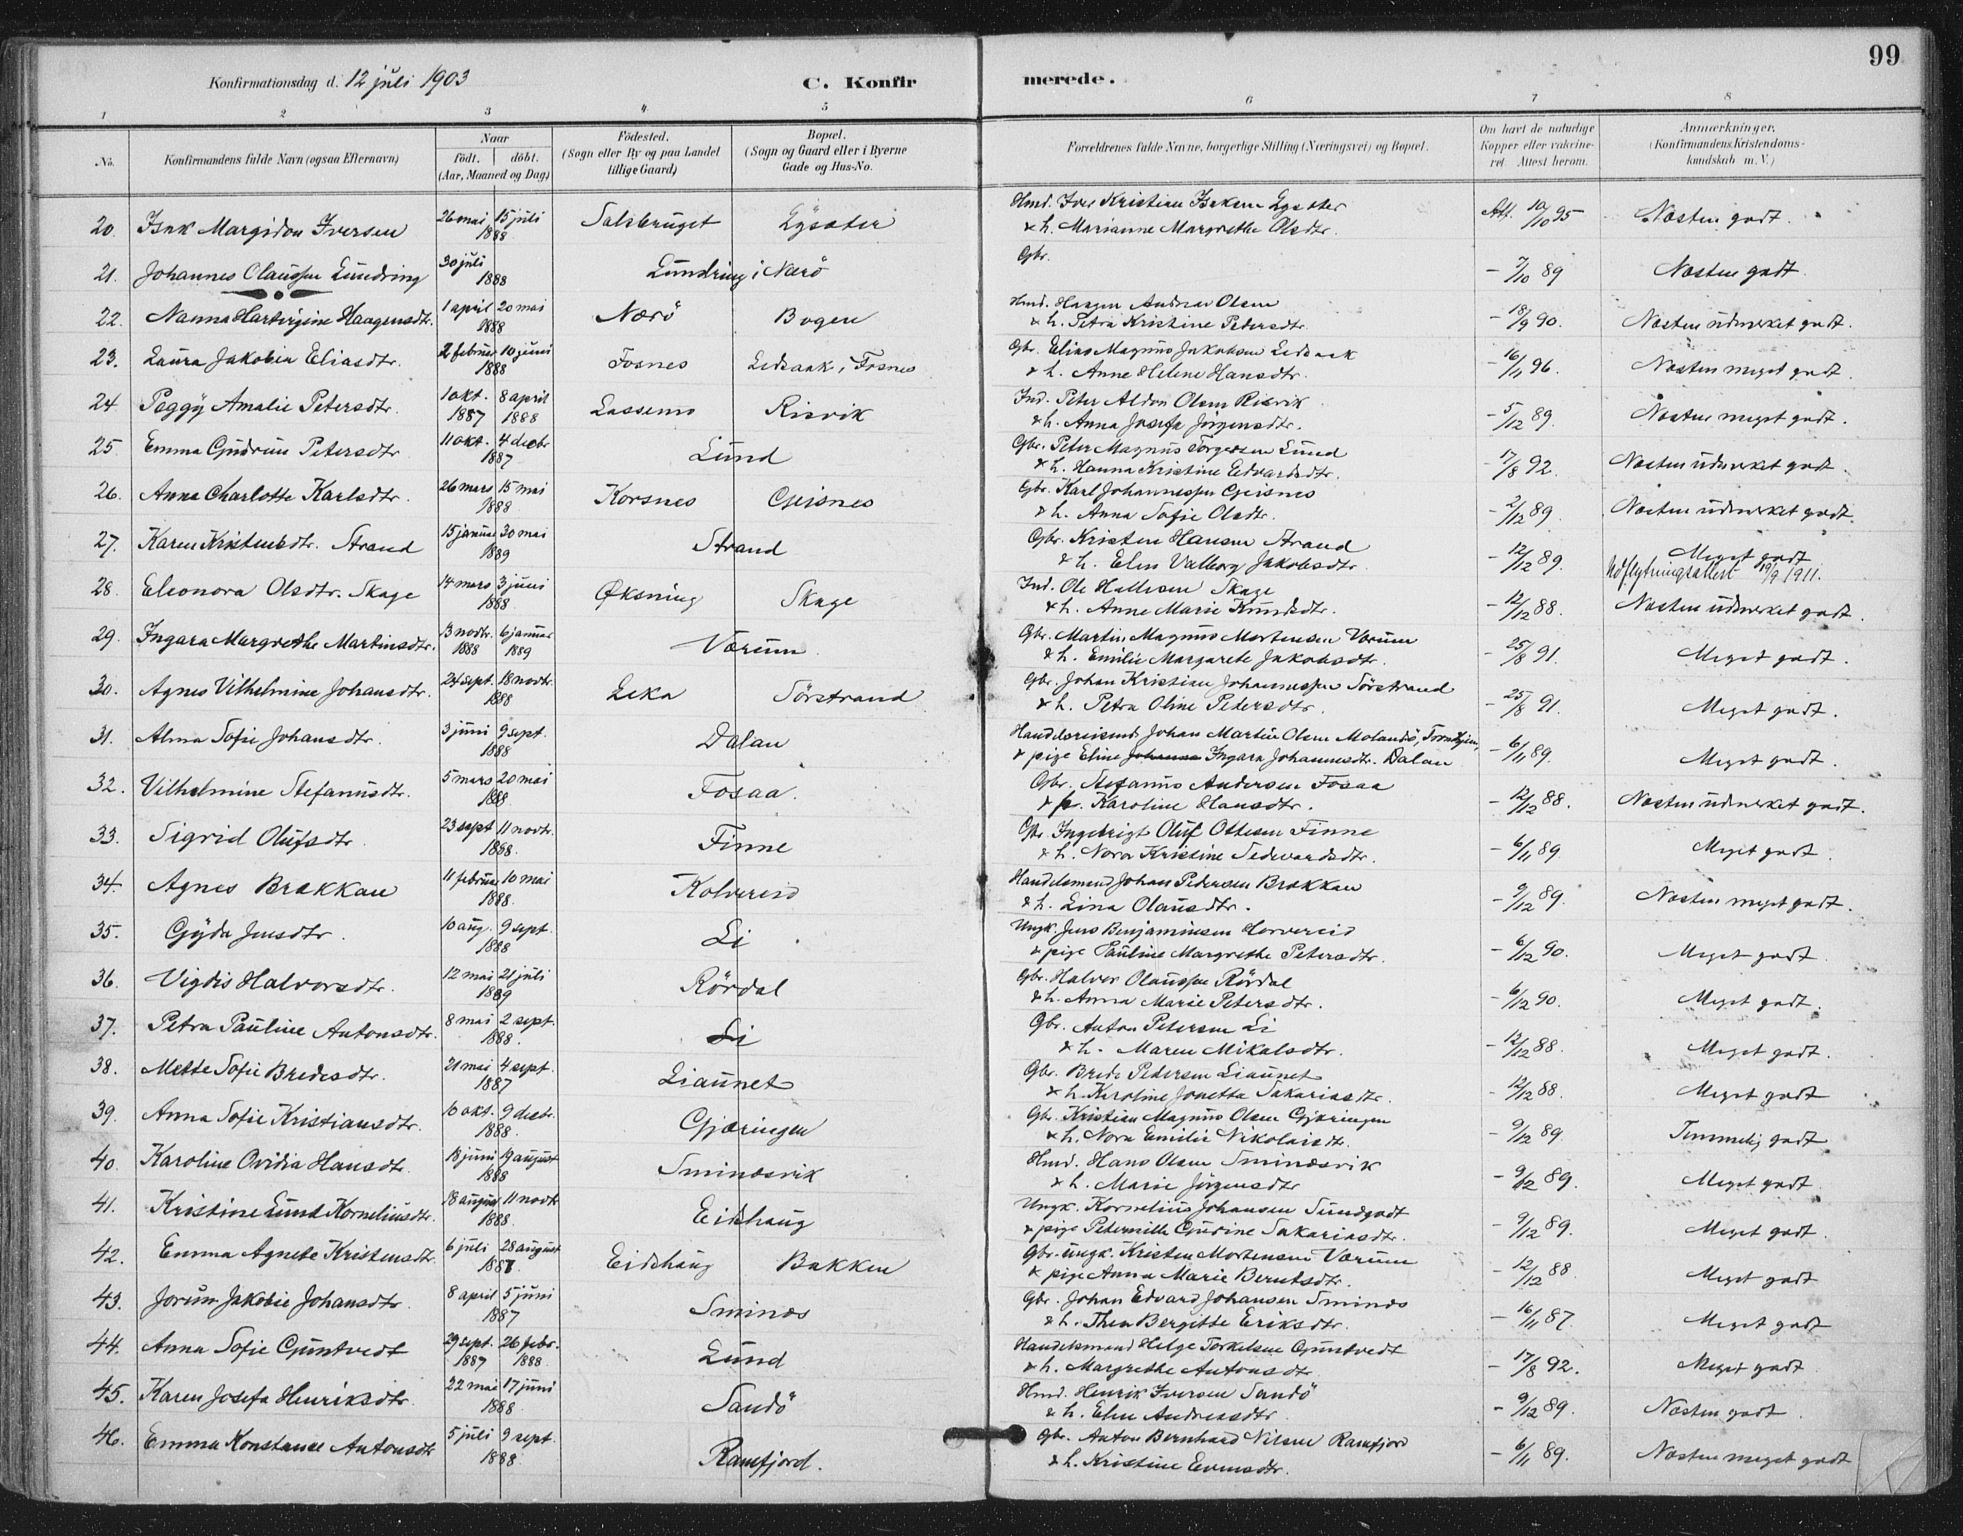 99
Konfirmationsdag d. 12 juli 1903
C. Konfirmerede.
1 2 3 4 5 6 7 8
No.
Konfirmandens fulde Navn (ogsaa Efternavn)
Naar
født. døbt.
(Aar, Maaned og Dag)
Fødested.
(Sogn eller By og paa Landet
tillige Gaard)
Bopæl.
(Sogn og Gaard eller i Byerne
Gade og Hus-No.
Forældrenes fulde Navne, borgerlige Stilling (Næringsvei) og Bopæl.
Om havt de naturlige
Kopper eller vaccine-
ret. Attest herom.
Anmærkninger.
(Konfirmandens Kristendoms-
kundskab m. V.)
20. Isak Margidon Iversen 26 mai 1888 15 juli Salsbruget Lysøter Hmd. Iver Kristian Isaksen Lysøter
& h. Marianne Margrethe Olsdtr. Att. 10/10 95 Næsten godt.
21. Johannes Olaussen Lundring 30 juli 1888 Lundring i Nærö Gbr. - 7/10 89 Næsten godt.
22. Nanna Hartvigine Haagensdtr. 1 april 20 mai 1888 Nærö Bogen Hmd. Haagen Andreas Olsen
& h. Petra Kristine Pedersdtr. - 18/9 90. Næsten udmerket godt.
23. Laura Jakobea Eliasdtr. 2 februar 10 juni 1888 Fosnes Ledsaak, Fosnes Gbr. Elias Magnus Jakobsen Ledsaak
& h. Anne Helene Hansdtr. - 16/11 96. Næsten meget godt.
24 Peggy Amalie Petersdtr. 1 okt. 1887 8 april 1888 Lassemo Risvik Ind. Peter Aldon Olsen Risvik
& h. Anna Josefa Jörgensdtr. - 5/12 89. Næsten meget godt.
25. Emma Gudrun Petersdtr 11 okt. 4 decbr 1887 Lund Gbr. Peter Magnus Torgersen Lund
& h. Hanna Kristine Edvardsdtr. - 17/8 92. Næsten udmerket godt.
26. Anna Charlotte Karlsdtr. 26 mars 15 mai 1888 Korsnes Geisnes Gbr. Karl Johannessen Geisnes
& h. Anna Sofie Olsdtr. - 2/12 89. Næsten udmerket godt.
27. Karen Kristensdtr. Strand 15 januar 30 mai 1889 Strand Gbr. Kristen Hansen Strand
& h. Elen Valborg Jakobsdtr. - 12/12 89. Meget godt
Udflytningsattest 19/9 1911.
28. Eleonora Olsdtr. Skage 14 mars 3 juni 1888 Øksning Skage Ind. Ole Hallesen Skage
& h. Anne Marie Knudsdtr. - 12/12 88. Næsten udmerket godt.
29. Ingara Margrethe Martinsdtr. 13 novbr. 1888 6 januar 1889 Værum Gbr. Martin Magnus Mortensen Værum
& h. Emilie Margarete Jakobsdtr. - 25/8 91. Meget godt.
30. Agnes Vilhelmine Johansdtr. 24 sept. 18 novbr. 1888 Leka Sörstrand Gbr. Johan Kristian Johannessen Sörstrand
& h. Petra Oline Petersdtr. - 25/8 91. Meget godt.
31. Alma Sofie Johansdtr. 3 juni 9 sept. 1888 Dalan Handelsreisend. Johan Martin Olsen Molandö, Trondhjem,
& pige Eline Johanna Ingara Johannesdtr. Dalan - 6/11 89. Meget godt.
32. Vilhelmine Stefanusdtr. 5 mars 20 mai 1888 Fosaa. Gbr. Stefanus Andersen Fosaa
& h. Karoline Hansdtr. - 12/12 88. Næsten udmerket godt.
33. Sigrid Olufsdtr. 23 sept 11 novbr. 1888. Finne Gbr. Ingebrigt Oluf Ottesen Finne
& h. Nora Kristine Sedevardsdtr. - 6/11 89. Meget godt.
34. Agnes Brækkan 11 februar 10 mai 1888. Kolvereid Handelsmand Johan Pedersen Brækkan
& h. Lina Olausdtr. - 9/12 89. Næsten meget godt.
35. Gyda Jensdtr. 10 aug. 9 sept. 1888 Li Ungk. Jens Benjaminsen Horvereid
& pige Pauline Margrethe Petersdtr. - 6/12 90. Meget godt.
36. Vigdis Halvorsdtr. 12 mai 21 juli 1889 Rördal Gbr. Halvor Olaussen Rördal
& h. Anna Marie Petersdtr. - 6/12 90. Meget godt.
37. Petra Pauline Antonsdtr. 8 mai 2 sept. 1888. Li Gbr. Anton Petersen Li
& h. Maren Mikalsdtr. - 12/12 88. Meget godt.
38. Mette Sofie Bredesdtr. 21 mai 4 sept. 1887 Liaunet Gbr. Brede Pedersen Liaunet
& h. Karoline Jonetta Sakariasdtr. - 12/12 88. Meget godt
39. Anna Sofie Kristiansdtr. 10 okt. 9 decbr. 1888. Gjæringen Gbr. Kristian Magnus Olsen Gjæringen
& h. Nora Emilie Nikolaisdtr. - 9/12 89. Temmelig godt
40. Karoline Ovidia Hansdtr. 18 juni 19 august 1888 Sminæsvik Hmd. Hans Olsen Sminæsvik
& h. Marie Jörgensdtr - 9/12 89. Meget godt.
41. Kristine Lund Korneliusdtr. 18 august 11 novbr. 1888. Eidshaug Ungk. Kornelius Johansen Sundgodt
& pige Peternille Gurine Sakariasdtr. - 9/12 89. Meget godt.
42. Emma Agnete Kristensdtr. 6 juli 28 august 1887 Eidshaug Bakken Gbr. ungk. Kristen Mortensen Værum
& pige Anna Marie Berntsdtr. - 12/12 88 Meget godt
43. Jorun Jakobie Johansdtr. 8 april 5 juni 1887 Sminæs Gbr. Johan Edvard Johansen Sminæs
& h. Thea Bergitte Eriksdtr. - 16/11 87. Meget godt
44. Anna Sofie Guntvedt 29 sept. 1887 26 febr. 1888. Lund Handelsmand Helge Torkelsen Guntvedt
& h. Margrethe Antonsdtr - 17/8 92. Meget godt
45. Karen Josefa Henriksdtr. 22 mai 17 juni 1888. Sandö Hmd. Henrik Iversen Sandö
& h. Elen Andreasdtr. - 9/12 89. Næsten godt
46. Emma Konstanse Antonsdtr 5 juli 9 sept. 1888. Ramfjord. Gbr. Anton Bernhard Nilsen Ramfjord
& h. Kristine Evensdtr. - 6/11 89. Næsten meget godt